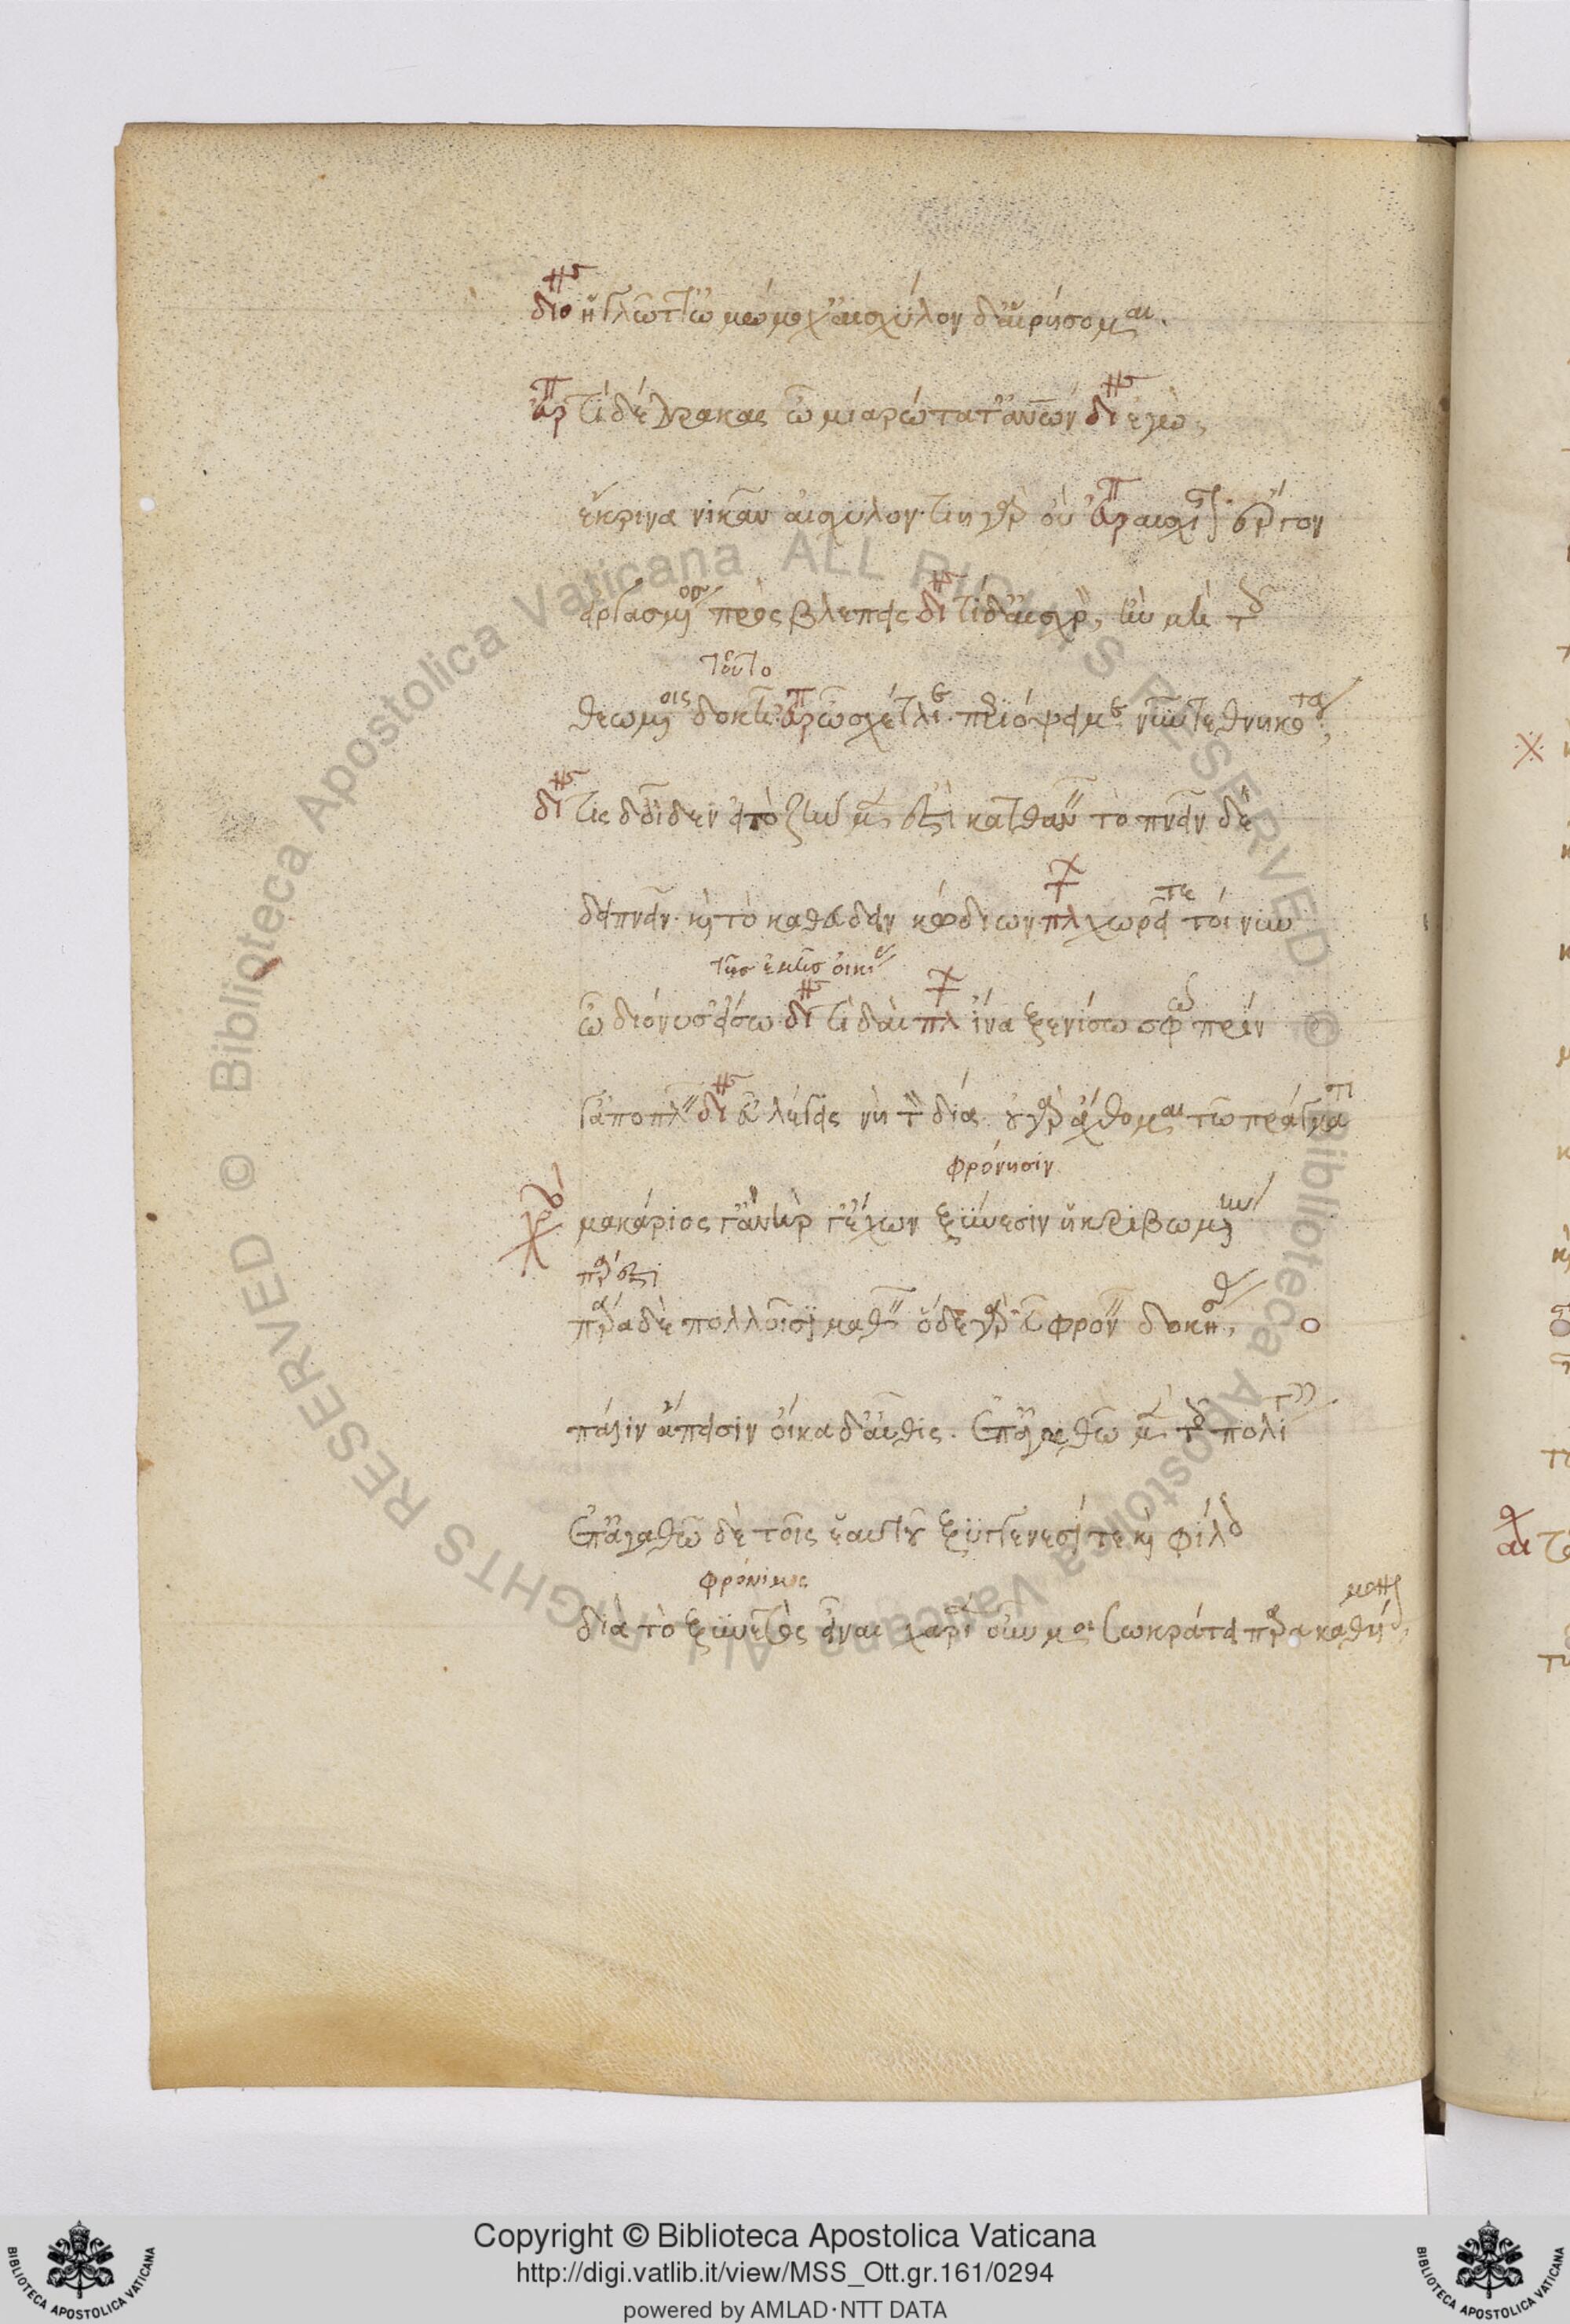 διο ἡ γλῶττ' ὀμώμοκ' αἰσχύλον δ' αἱρήσομαι.
ἐυρ τί δέδρακας ὦ μιαρώτατ' ἀνθρώπων δι ἐγὼ;
ἔκρινα νικᾶν αἰσχύλον· τιὴ γὰρ οὔ ἐυρ αἴσχιστον ἔργον
εἰργασμένος προσβλέπεις δι τί δ' αἰσχρὸν, ἢν μὴ τοῖς
τοῦτο
θεωμένοις δοκῆ· ἐυρ ὦ σχέτλιε περιόψει με νῦν τεθνηκότα;
δι τίς δ' οἶδεν εἰ τὸ ζῆν μέν ἐστι κατθανεῖν τὸ πνεῖν δὲ
δειπνεῖν· καὶ τὸ καθεύδειν κώδιον πλ χωρεῖτε τοίνυν
τῆσ ἐμῆσ οἰκίας
ὦ διόνυσ' εἴσω δι τί δαί πλ ἵνα ξενίσω σφὼ πρὶν
ἀποπλεῖν δι εὖ λέγεις νὴ τὸν δία. οὐ γὰρ ἄχθομαι τῶ πράγματι
φρόνησιν
χο μακάριός γ' ἀνὴρ ἔχων ξύνεσιν ἠκριβωμένην
πάρεστι
πάρα δὲ πολλοῖσι μαθεῖν ὅδε γὰρ εὖ φρονεῖν δοκήσας
πάλιν ἄπεισιν οἴκαδ' αὖθις. ἐπ' ἀγαθῶ μὲν τοῖς πολίταις
ἐπ' ἀγαθῶ δὲ τοῖς ἑαυτοῦ ξυγγενέσι τε καὶ φίλοις
φρόνιμος
διὰ τὸ ξυνετὸς εἶναι χαρίεν οὖν μὴ σωκράτει παρακαθήμενον
Copyright © Biblioteca Apostolica Vaticana
http://digi.vatlib.it/view/MSS_Ott.gr.161/0294
powered by AMLAD·NTT DATA